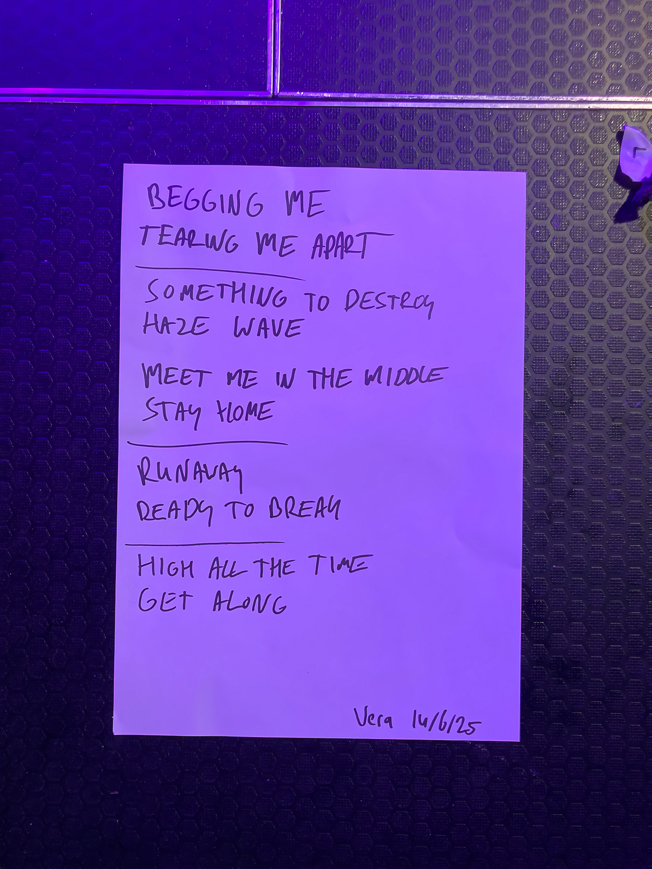 BEGGING ME
TEARING ME APART
SOMETHING TO DESTROY
HAZE WAVE
MEET ME IN THE MIDDLE
STAY HOME
RUNAWAY
READY TO BREAK
HIGH ALL THE TIME
GET ALONG
Vera 14/6/25